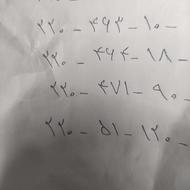 ۲۲۰ - ۴۶۳ - ۱۰ -
۲۲۰ - ۴۶۴ - ۱۸ -
۲۲۰ - ۴۷۱ - ۹۰
۲۲۰ - ۵۱ - ۱۲۰ -